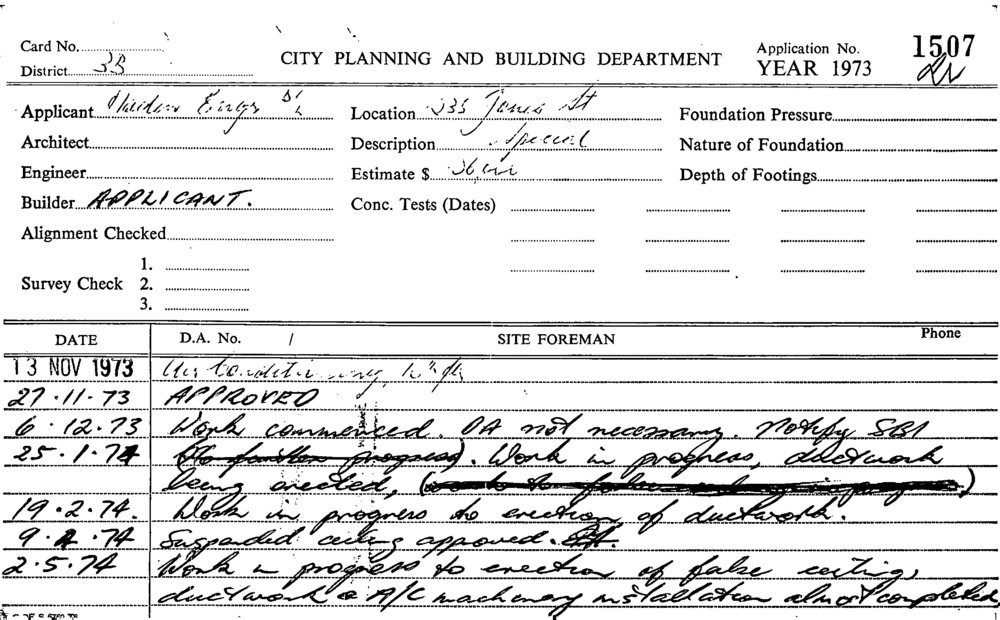 Card No.
CITY PLANNING AND BUILDING DEPARTMENT
Application No. 1507
District 3B
YEAR 1973
Applicant
Location 233 James St
Foundation Pressure
Architect
Description Special
Nature of Foundation
Engineer
Estimate $
Depth of Footings
Builder APPLICANT.
Conc. Tests (Dates)
Alignment Checked
Survey Check 1.
2.
3.
DATE D.A. No. / SITE FOREMAN Phone
13 NOV 1973 Air Conditioning
27.11.73 APPROVED
6.12.73 Work commenced. DA not necessary. Notify SBI
25.1.74 (No further progress). Work in progress, ductwork
being erected,
19.2.74. Work in progress to erection of ductwork.
9.4.74 Suspended ceiling approved.
2.5.74 Work in progress to erection of false ceiling,
ductwork & A/C machinery installation almost completed,